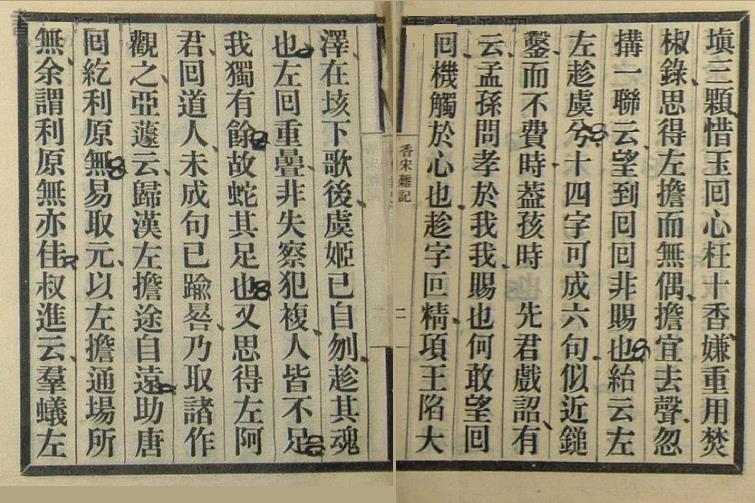 塡三顆惜玉回心枉十香嫌重用焚
椒錄思得左擔而無偶擔宜去聲忽
搆一聯云望到回回非賜也紿云左
左趁虞兮十四字可成六句似近鎚
鑿而不費時葢孩時 先君戲詔有
云孟孫問孝於我我賜也何敢望回
回機觸於心也趁字叵精項王陷大
香宋雜記
二
澤在垓下歌後虞姬已自刎趁其魂
也左回重疊非失察犯複人皆不足
我獨有餘故蛇其足也又思得左阿
君回道人未成句已踰晷乃取諸作
觀之亞蘧云歸漢左擔途自遠助唐
回紇利原無易取元以左擔通場所
無余謂利原無亦佳叔進云羣蟻左